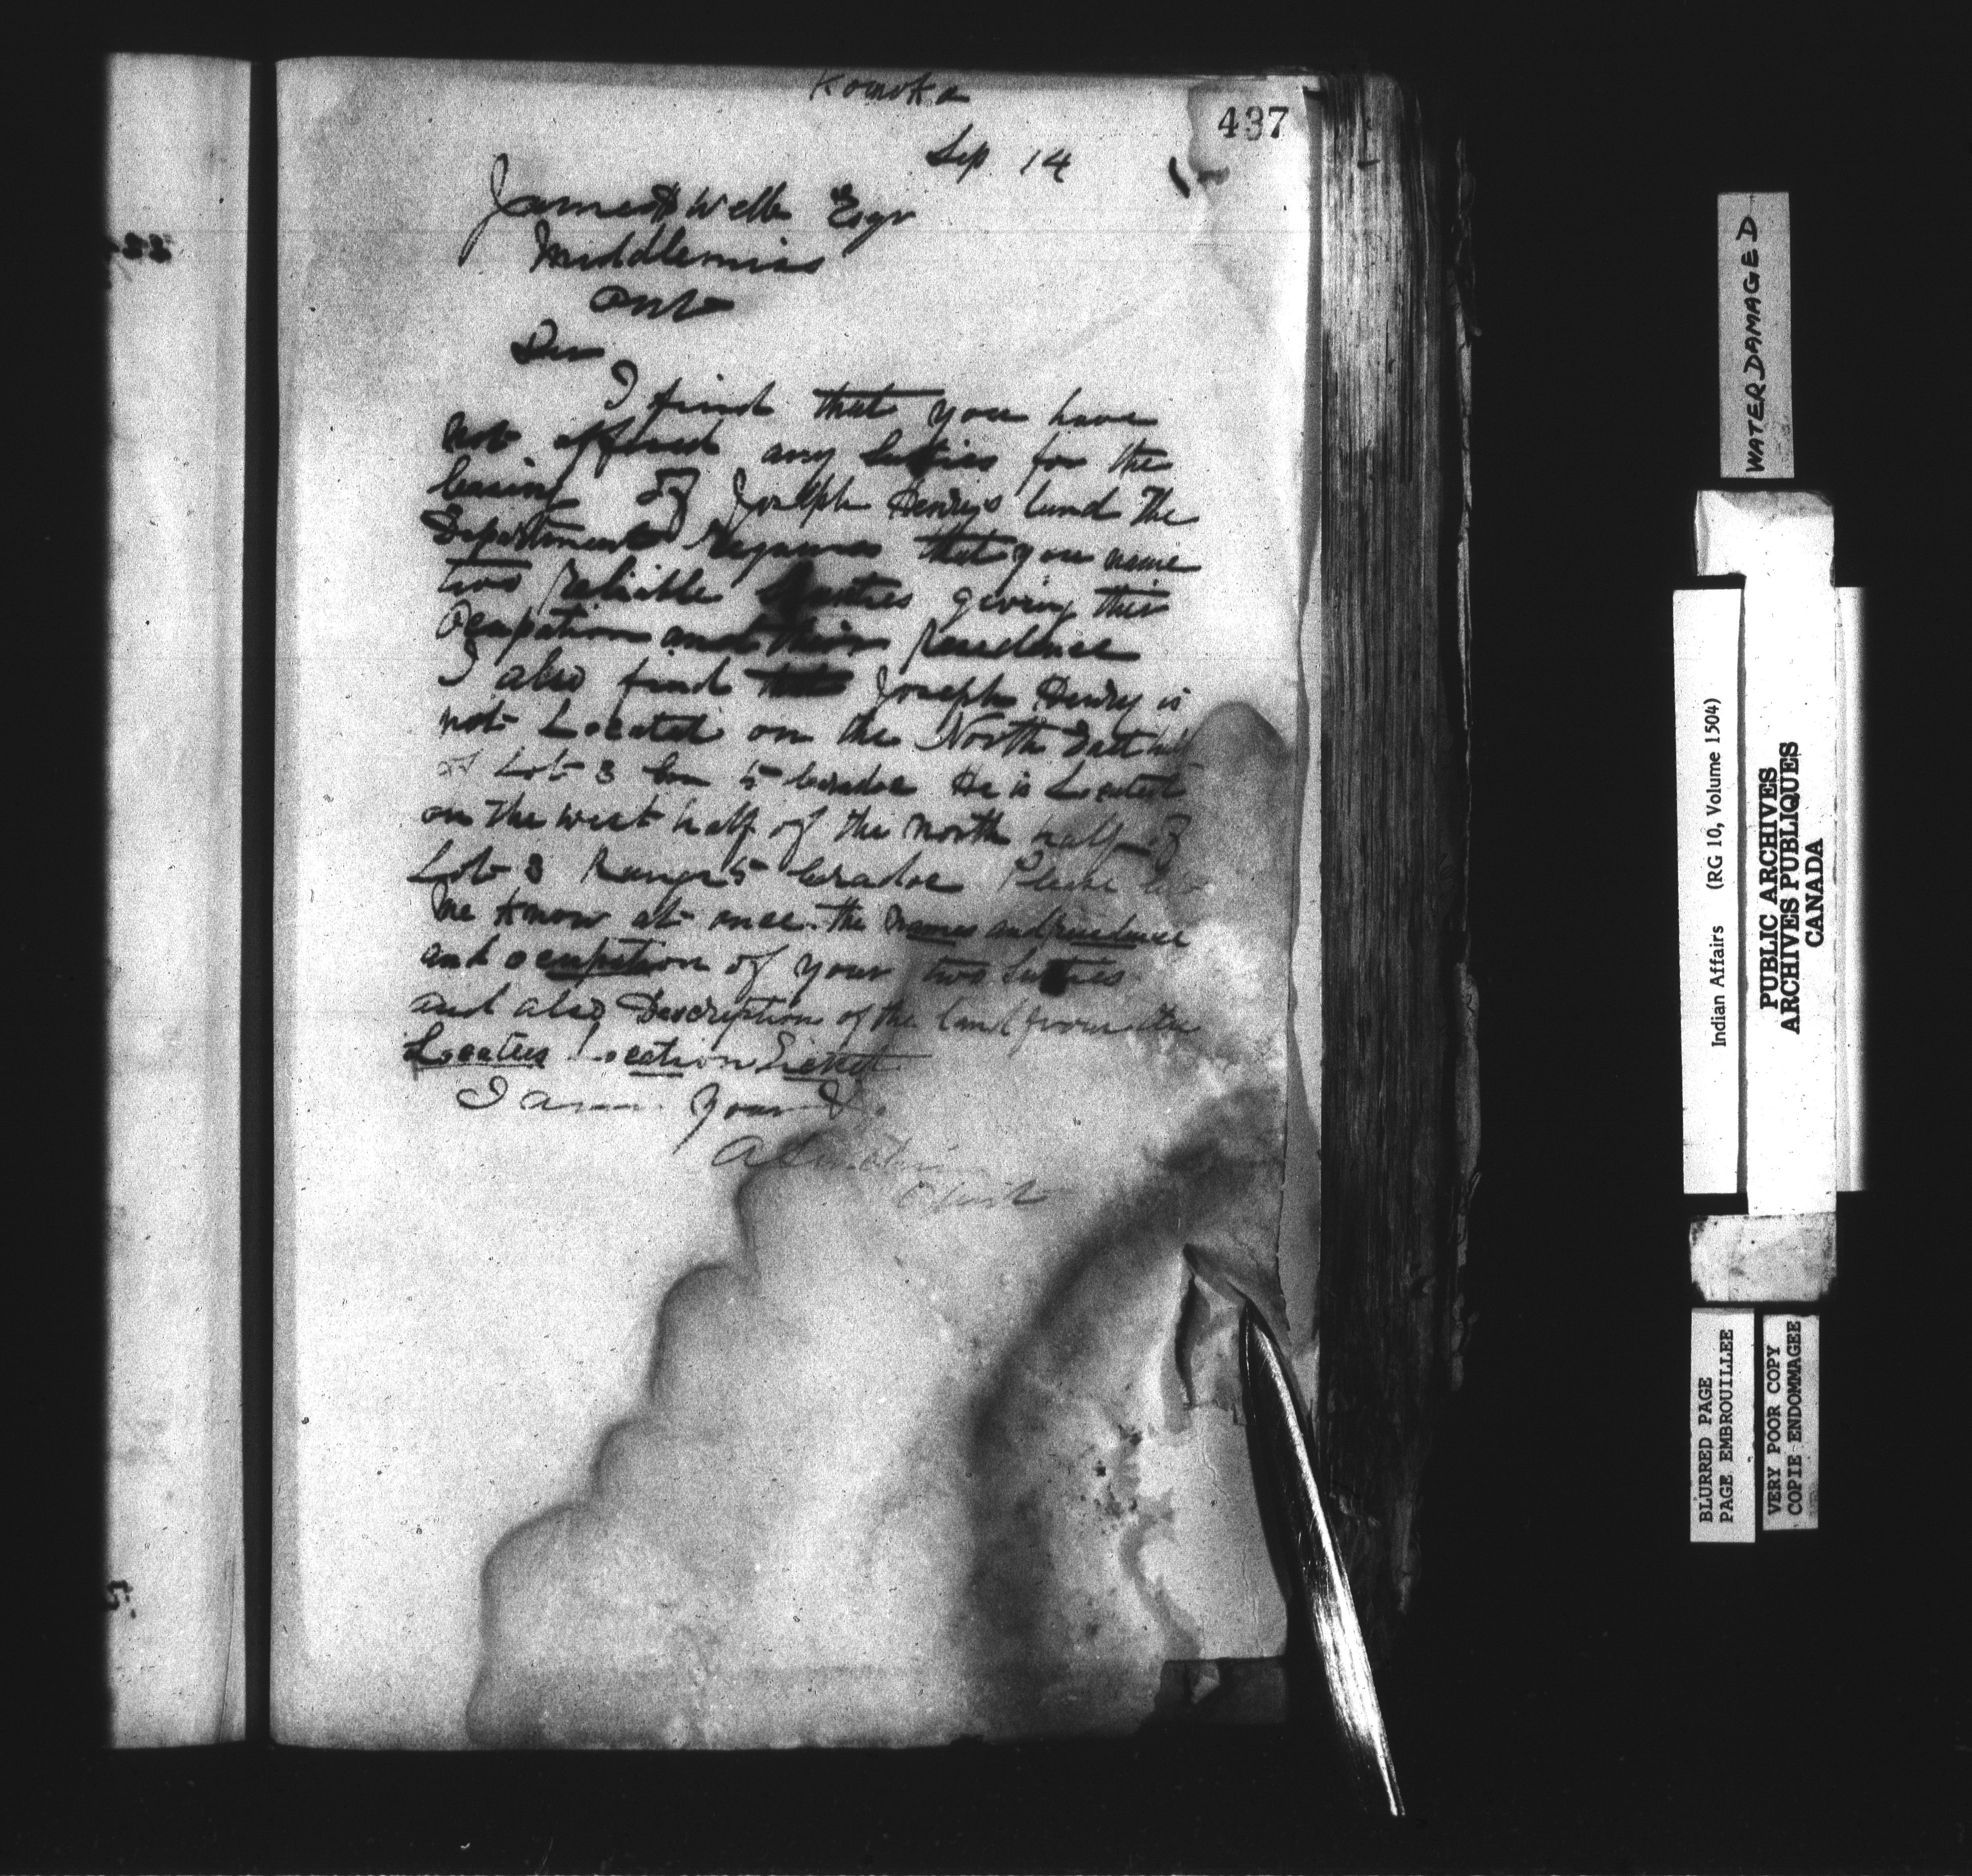 Komoka
437
Sep 14
James Wells Esqr
Middlemiss
Ont
Sir
I find that you have
not offered any Suties for the
leasing of Joseph Henrys land The
Department Requires that you name
two Reliable Suties giving their
Ocupation and their Residence
I also find that Joseph Henry is
not Located on the North East half
of Lot 3 Con 5 Caradoc He is Located
on the west half of the North half of
Lot 3 Range 5 Caradoc Please let
me know at once the names and residence
and ocupation of your two Suties
and also Description of the land from the
Locatees Location Ticket
I am Your
WATER DAMAGED
Indian Affairs (RG 10, Volume 1504)
PUBLIC ARCHIVES
ARCHIVES PUBLIQUES
CANADA
BLURRED PAGE
PAGE EMBROUILLEE
VERY POOR COPY
COPIE ENDOMMAGEE